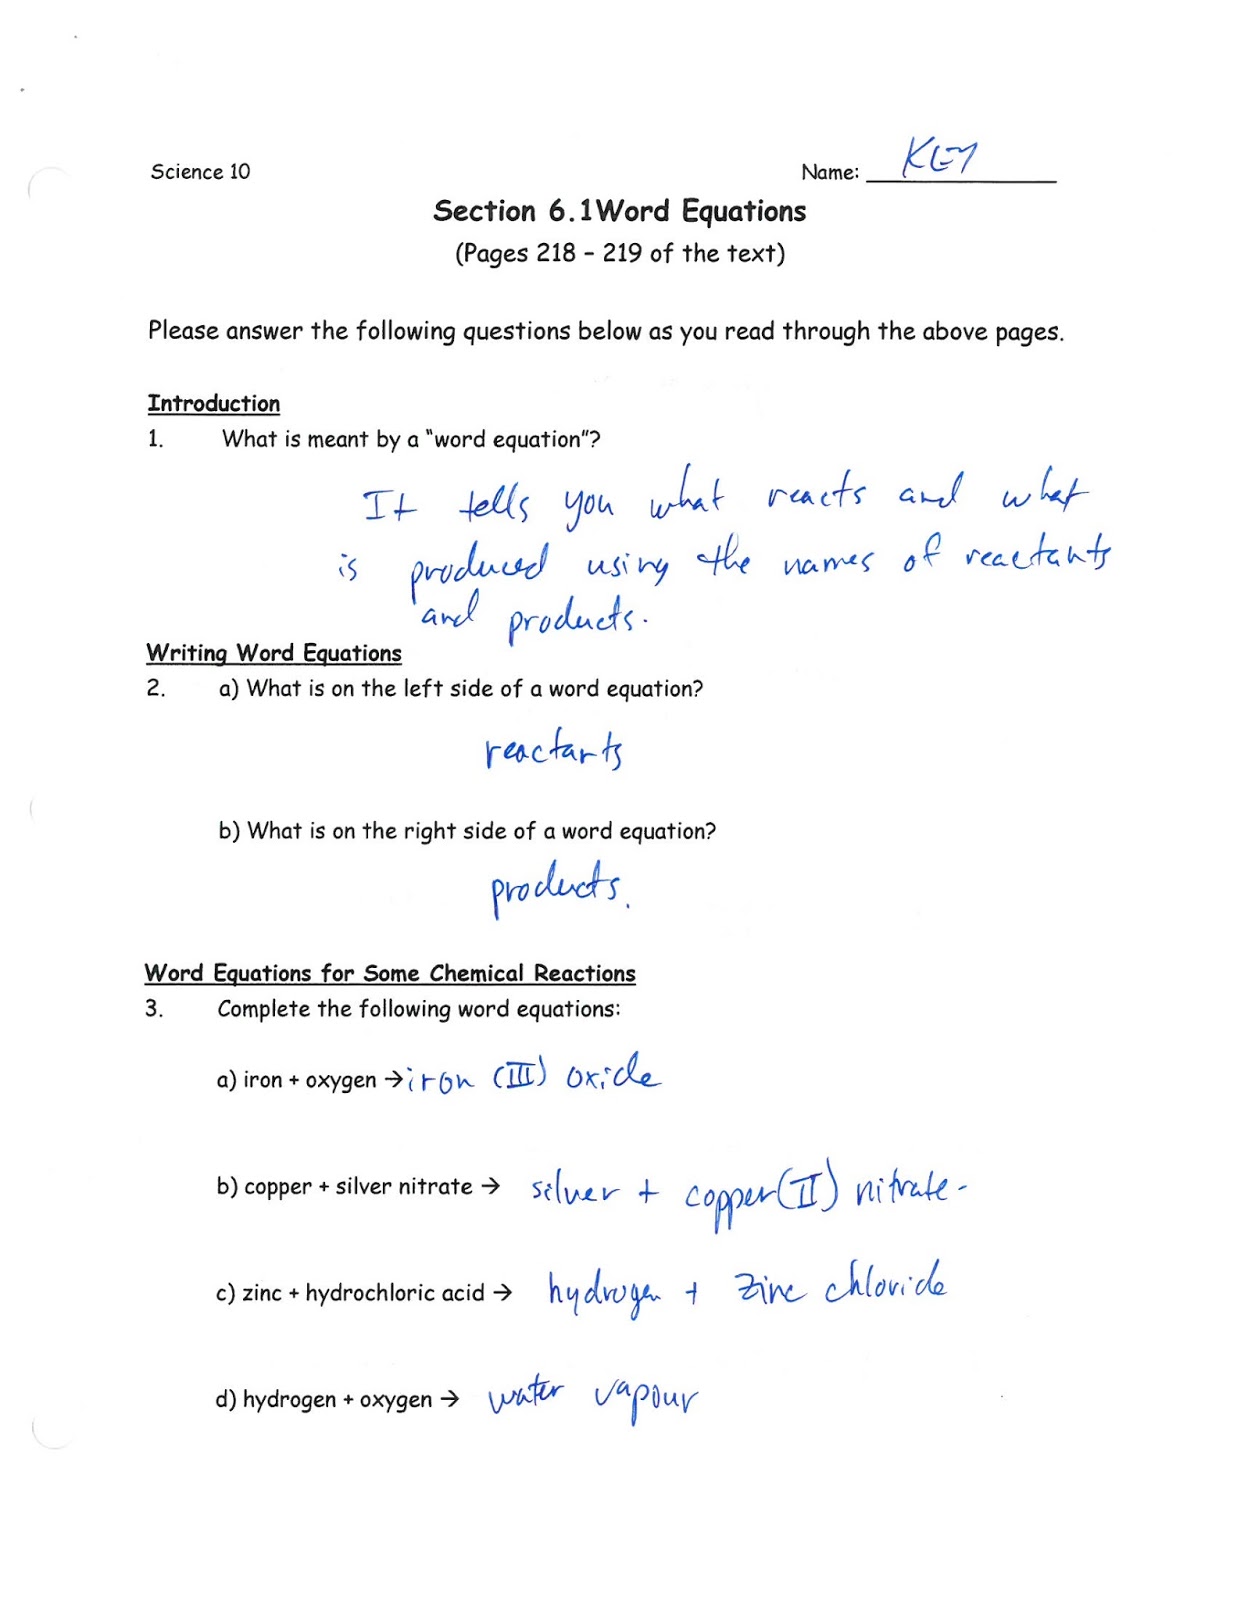 Science 10 Name: KEY
Section 6.1Word Equations
(Pages 218 – 219 of the text)
Please answer the following questions below as you read through the above pages.
Introduction
1. What is meant by a "word equation"?
It tells you what reacts and what
is produced using the names of reactants
and products.
Writing Word Equations
2. a) What is on the left side of a word equation?
reactants
b) What is on the right side of a word equation?
products.
Word Equations for Some Chemical Reactions
3. Complete the following word equations:
a) iron + oxygen → iron (III) oxide
b) copper + silver nitrate → silver + copper(II) nitrate-
c) zinc + hydrochloric acid → hydrogen + zinc chloride
d) hydrogen + oxygen → water vapour